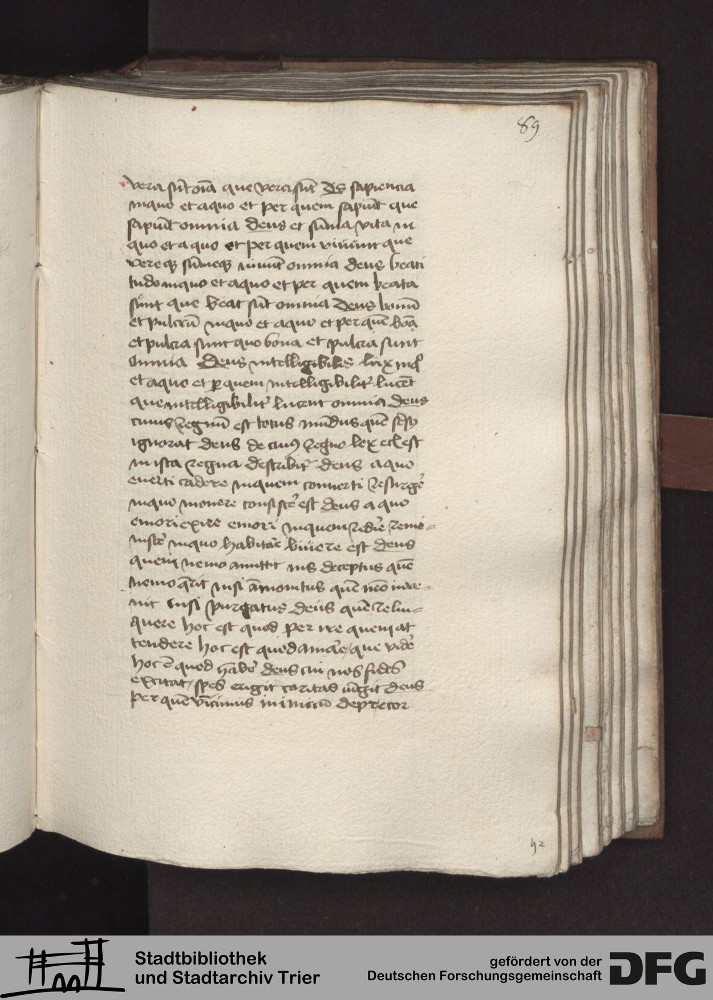 89
vera sūt oīa que vera sūt ds sapiencia
in quo et a quo et per quem sapiūt que
sapiūt omnia deus et sūma vita in
quo et a quo et per quem viuunt que
vere viuunt omnia deus beati
tudo in quo et a quo et per quem beata
sunt que beata sūt omnia deus bonū
et pulcrū in quo et a quo et per quē bōa
et pulcra sunt que bona et pulcra sunt
omnia deus intelligibilis lux in q°
et a quo et p quem intelligibilit' lucēt
que intelligibilit' lucent omnia deus
cuius regnū est totus mūdus quē
ignorat deus de cuiꝰ regno lex est
in ista regna describit' deus a quo
euerti cadere in quem conuerti resurge'
in quo manere consiste' est deus a quo
exire emori in quem redire reui-
uisce' in quo habitare viuere est deus
quem nemo amittit nisi deceptus quē
nemo q̄rit nisi āmonitus quē nēo inue-
nit nisi purgatus deus quē relin-
quere hoc est quod per ire quem at
tendere hoc est quod amare que vide'
hoc ē quod habe' deus cui nos fides
excitat spes erigit caritas iūgit deus
per quē vīcimus inimicū deprecor
h2
Stadtbibliothek
und Stadtarchiv Trier
gefördert von der
Deutschen Forschungsgemeinschaft DFG